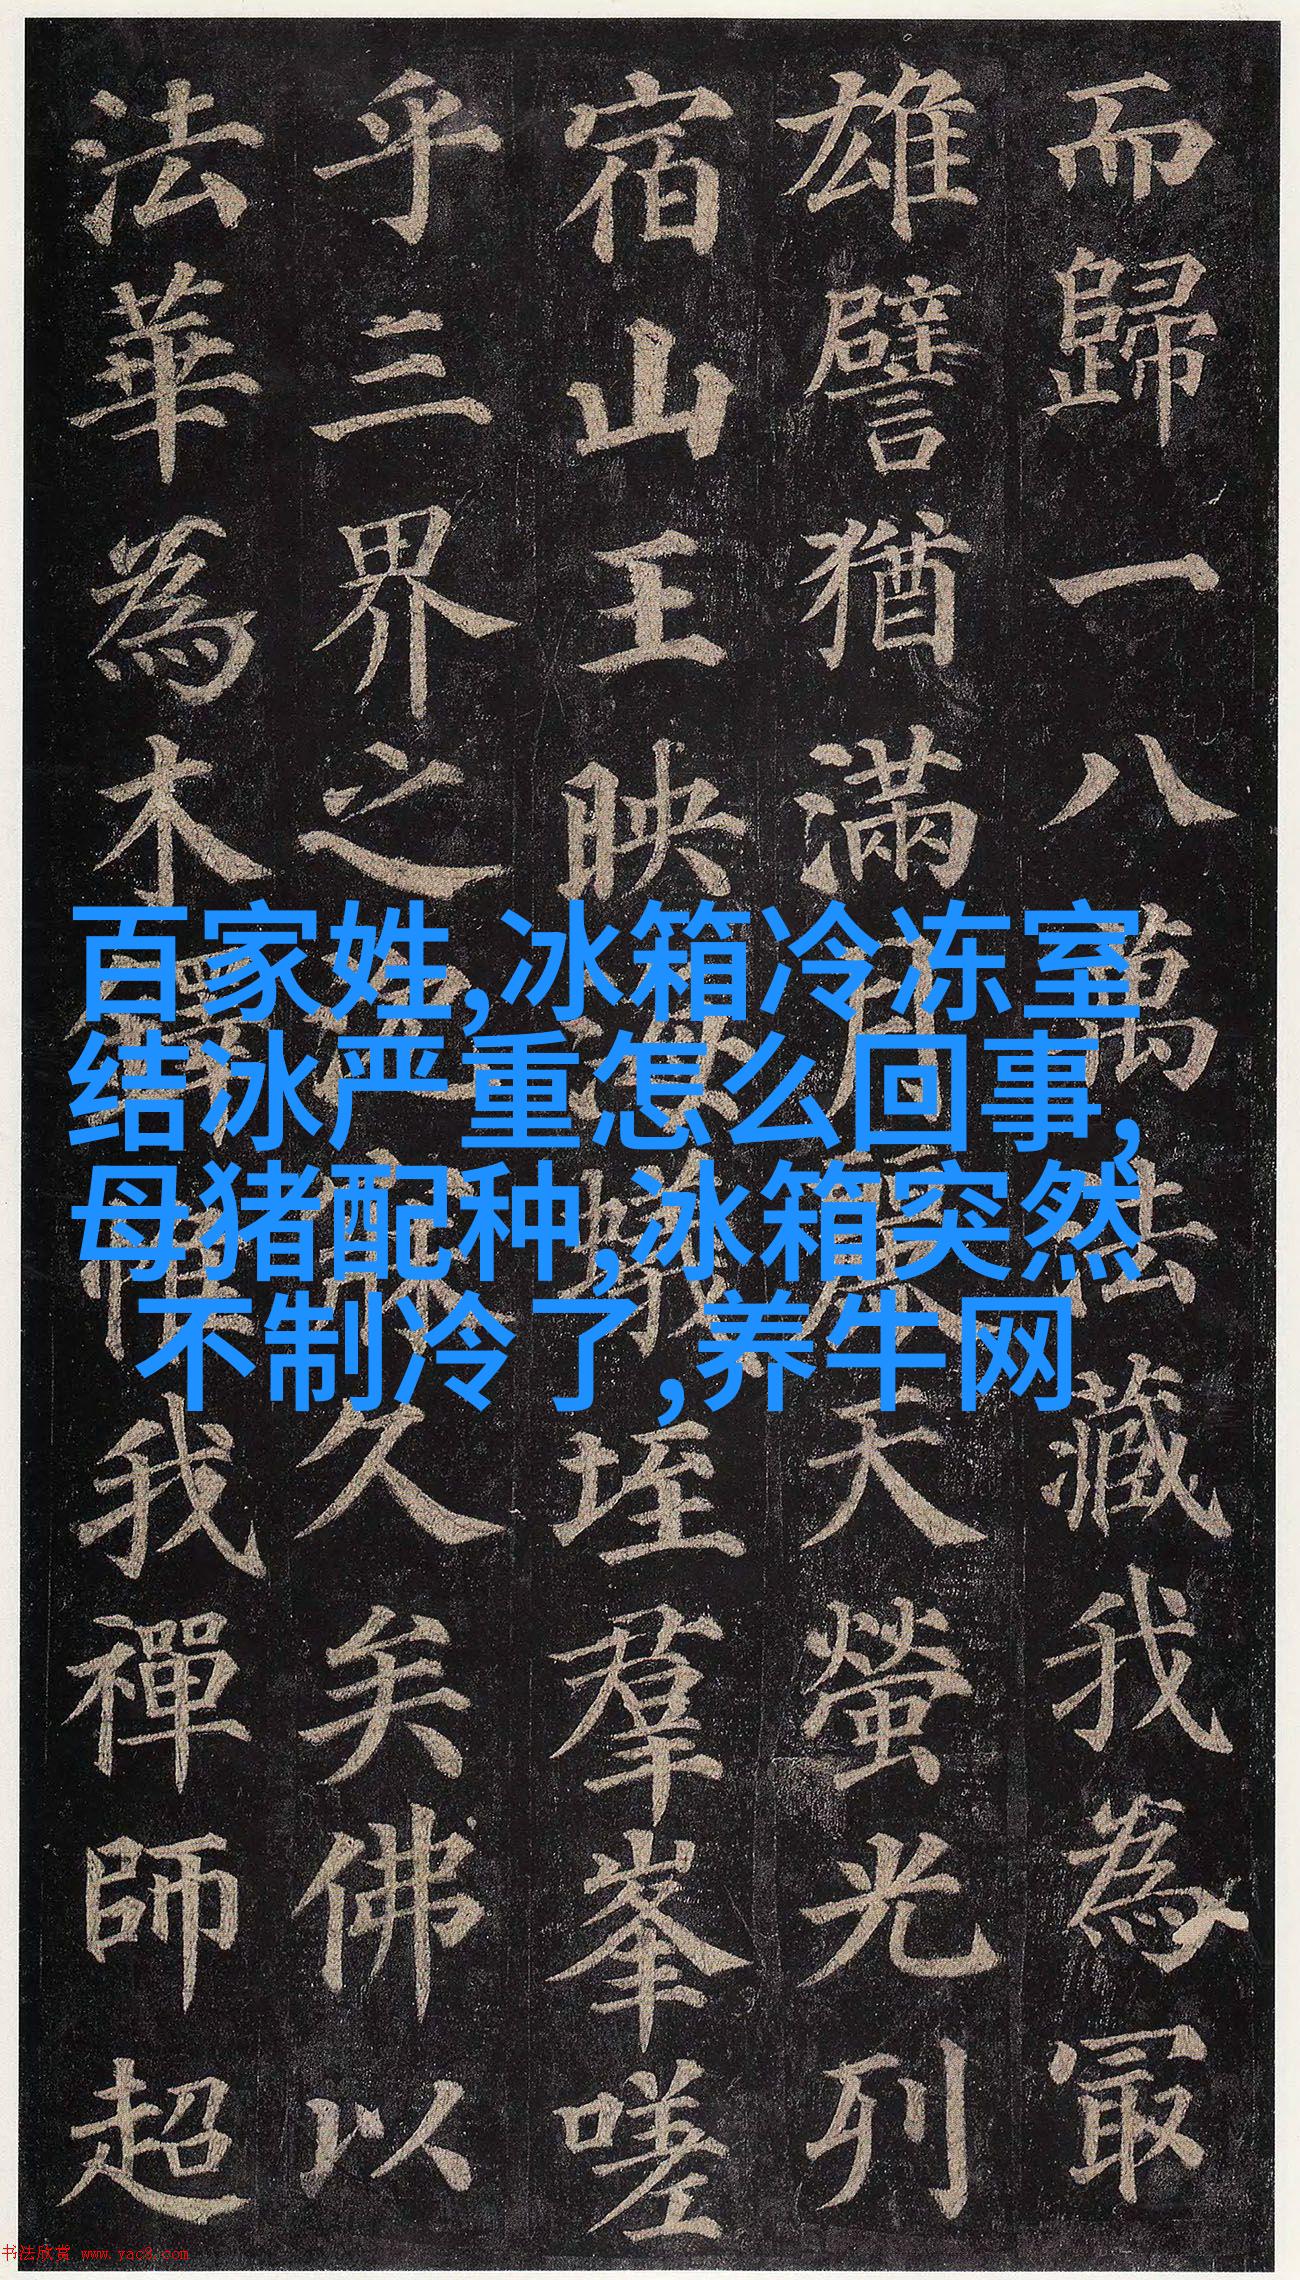 而歸一八萬法藏我為冣
雄譬猶滿月麗天螢光列
宿山王映海蟻垤羣峯嗟
乎三界之沉寐久矣佛以
法華為木鐸惟我禪師超
百家姓,冰箱冷冻室
结冰严重怎么回事,
母猪配种,冰箱突然
不制冷了,养牛网
书法欣赏 www.yac8.com